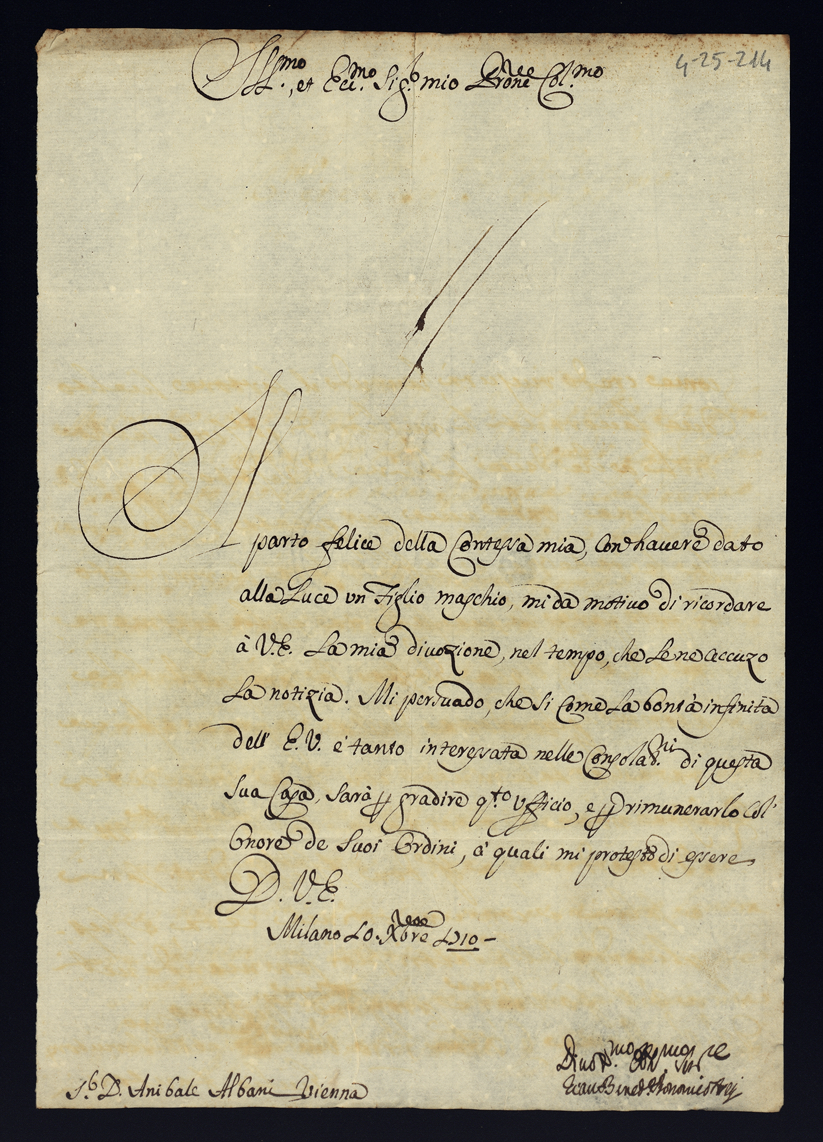 Ill.mo, et Ecc.mo Sig.r mio Prone Col.mo
4-25-214
Il
parto felice della Contessa mia, con havere dato
alla Luce vn Figlio maschio, mi dà motiuo di ricordare
à V.E. La mia diuozione, nel tempo, che Le ne accuzo
La notizia. Mi persuado, che si come La bontà infinita
dell' E.V. e' tanto interessata nelle Consola.ni di questa
sua Casa, sarà p gradire q.to Vfficio, e p rimunerarlo col'
Onore de suoi Ordini, a' quali mi protesto di essere
D. V.E.
Milano 10 Xbre 1710 -
S.r D. Anibale Albani Vienna